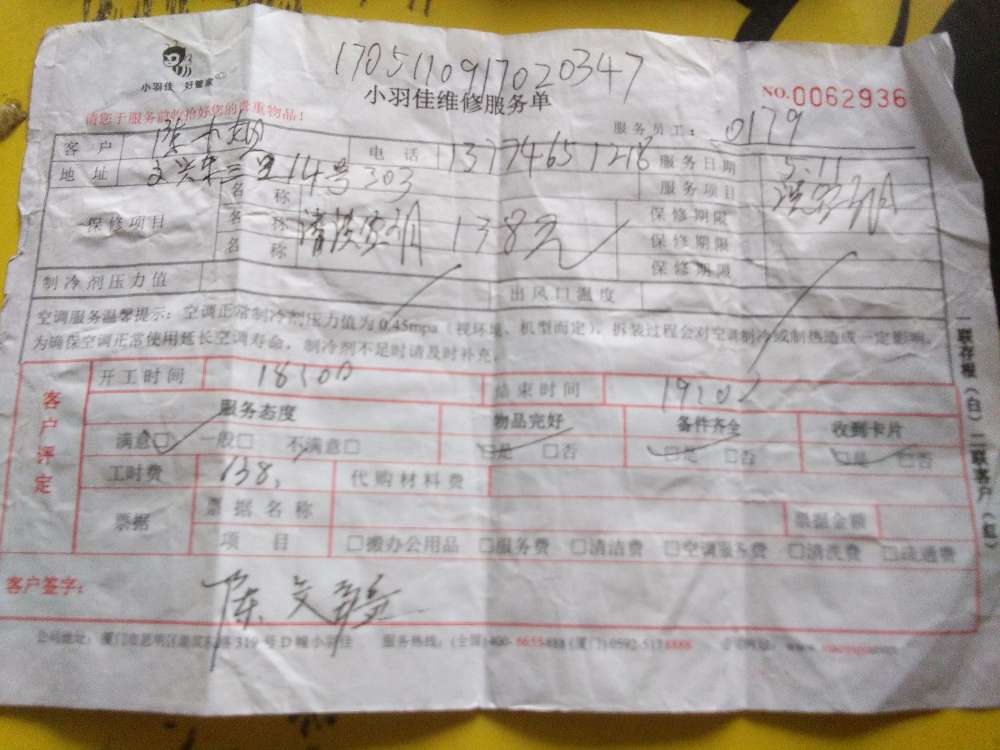 1705110917020347
小羽佳 好管家
小羽佳维修服务单
NO.0062936
请您于服务前收拾好您的贵重物品!
服务员工: 0179
客户 陈 电话 13774651218 服务日期 5.11
地址 文兴东三里14号303 服务项目
保修项目 名称 保修期限
名称 清洗空调 138元 保修期限
名称 保修期限
制冷剂压力值 出风口温度
空调服务温馨提示: 空调正常制冷剂压力值为0.45mpa(视环境、机型而定),拆装过程会对空调制冷或制热造成一定影响,
为确保空调正常使用延长空调寿命,制冷剂不足时请及时补充。
客户评定
开工时间 18:00 结束时间
服务态度 物品完好 备件齐全 收到卡片
满意□ 一般□ 不满意□ □是 □否 □是 □否 □是 □否
工时费 138 代购材料费
票据 票据名称 票据金额
项目 □搬办公用品 □服务费 □清洁费 □空调服务费 □清洗费 □疏通费
客户签字: 陈文
公司地址: 厦门市思明区 319号D幢小羽佳 服务热线: (全国)400-6655488 (厦门)0592-5178888 www.
一联存根(白) 二联客户(红)